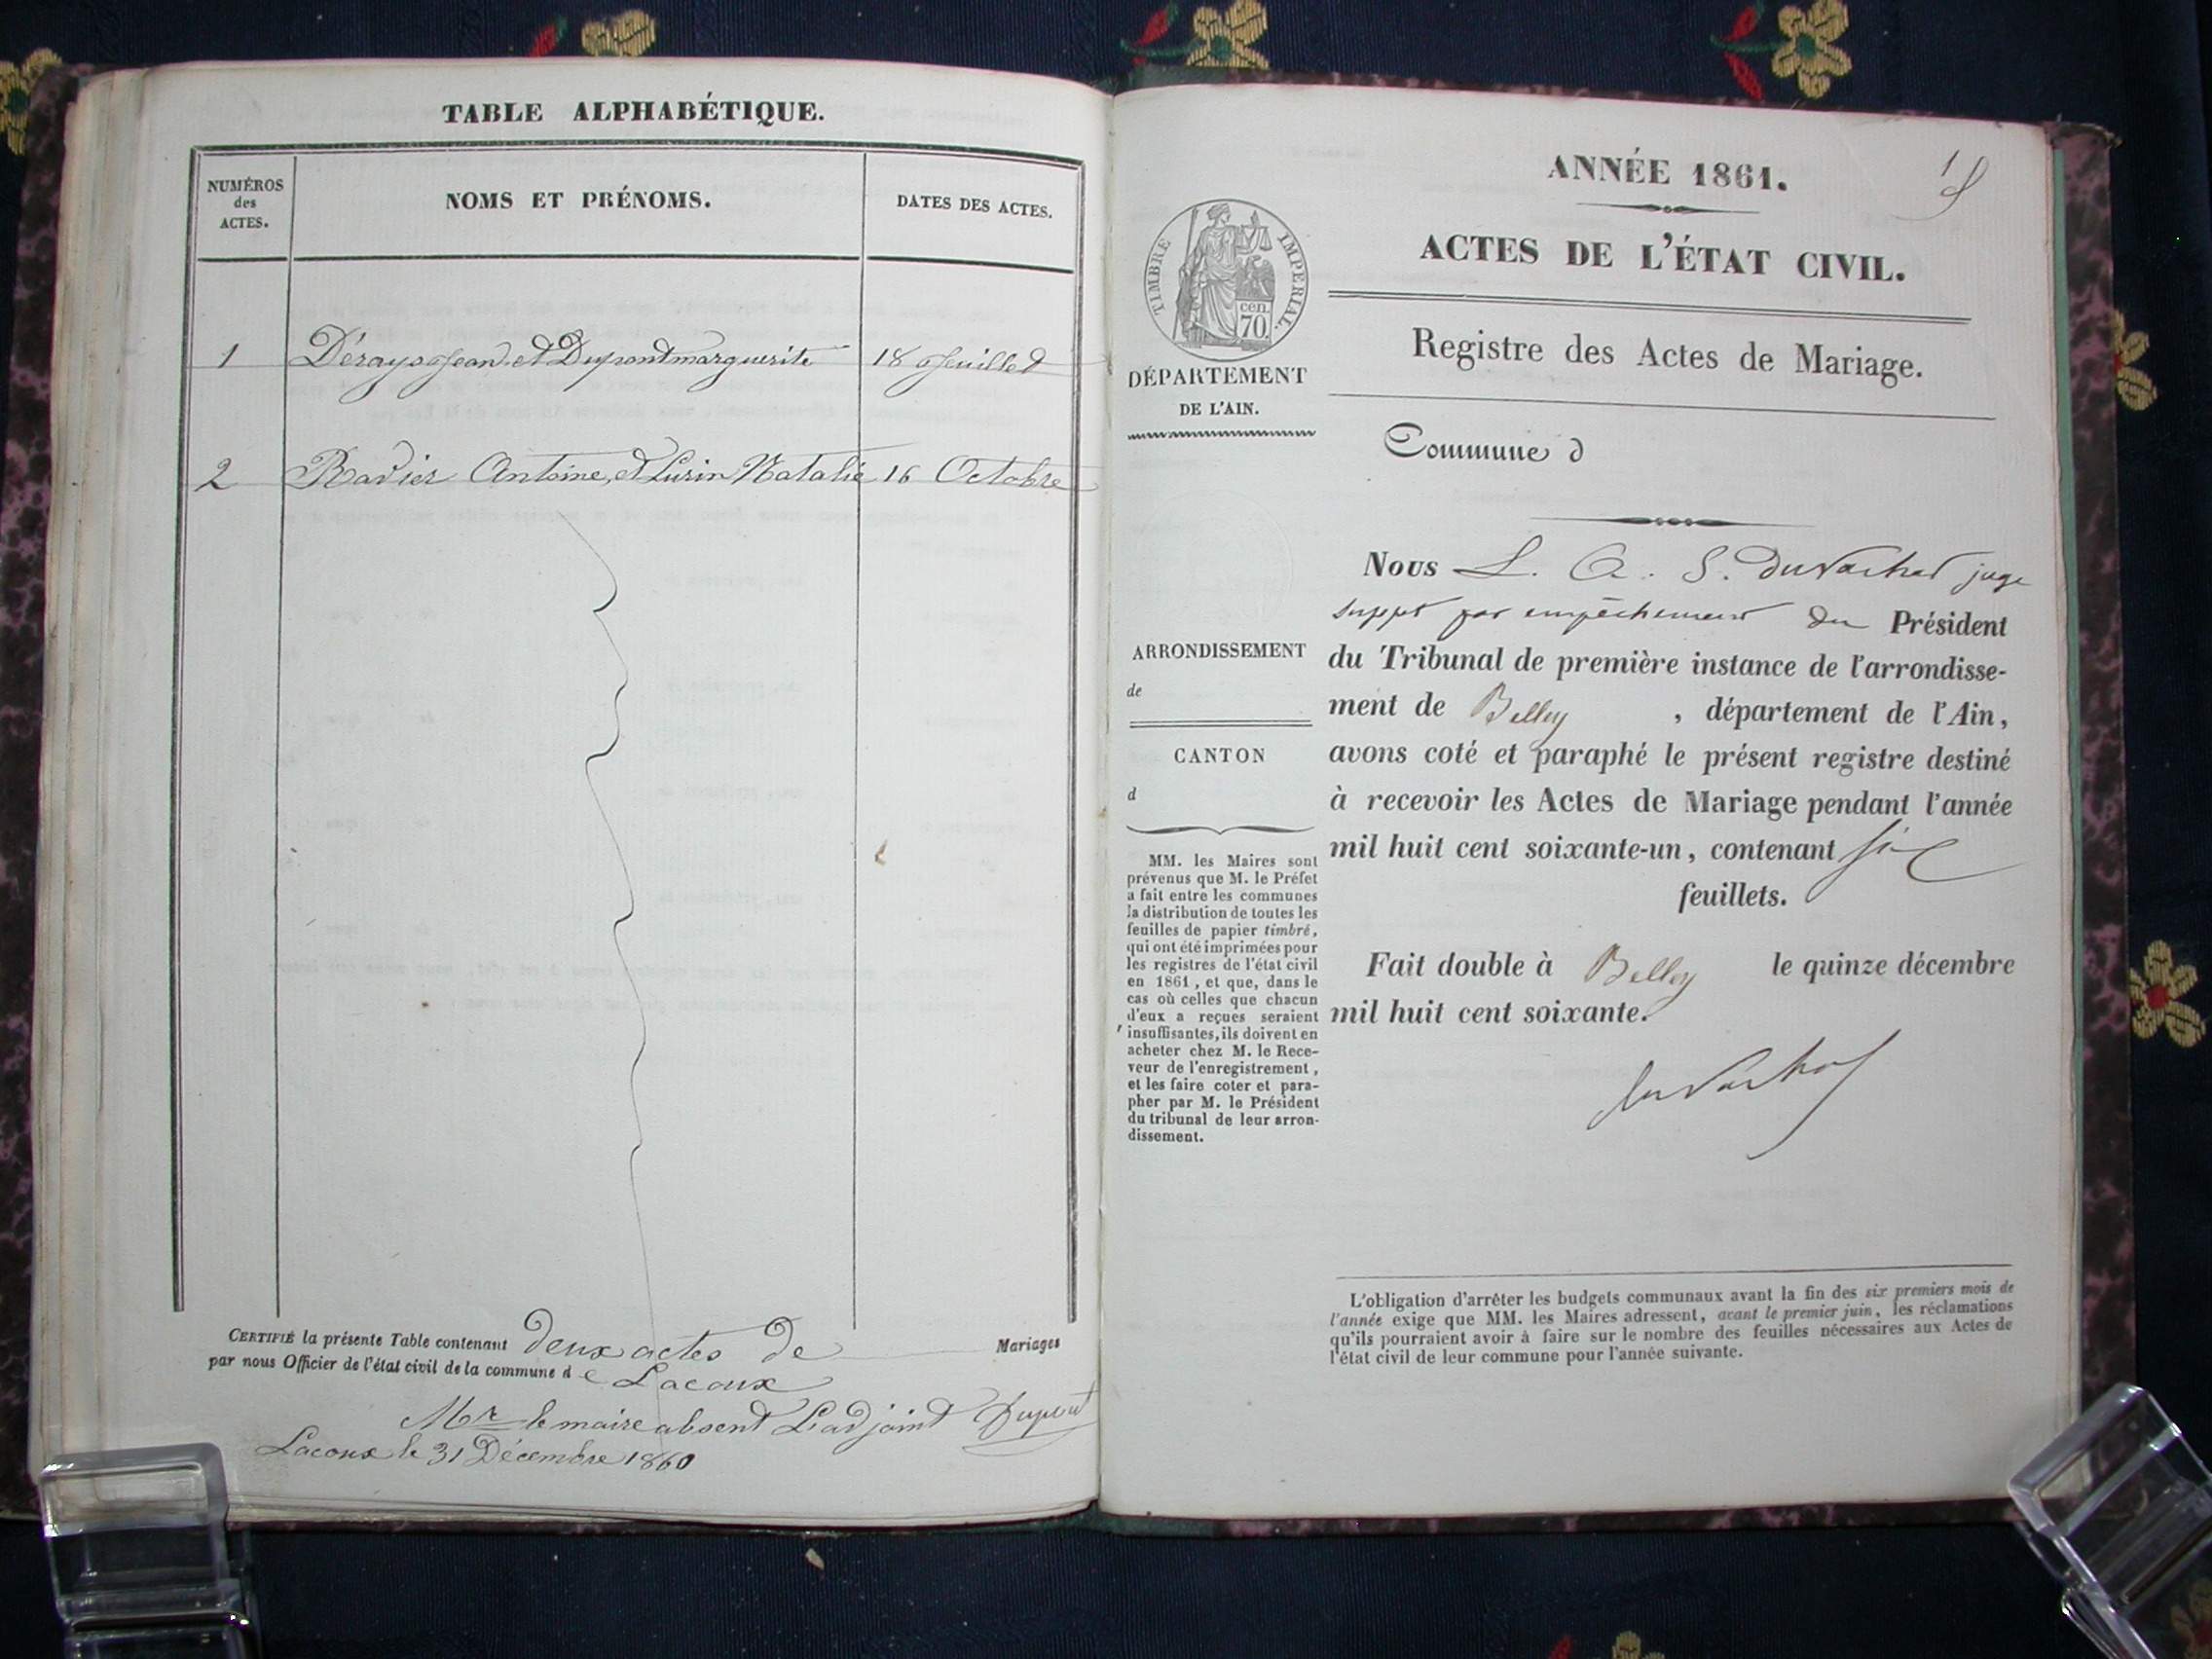 TABLE ALPHABÉTIQUE.
NUMÉROS
des
ACTES.
NOMS ET PRÉNOMS.
DATES DES ACTES.
1 Dérays Jean et Dupont marguerite 18 Jeuillet
2 Ravier Antoine, et Lurin Natalie 16 Octobre
CERTIFIÉ la présente Table contenant deux actes de Mariages
par nous Officier de l'état civil de la commune d e Lacoux
Mr le maire absent L'adjoint Dupont
Lacoux le 31 Décembre 1860
1
ANNÉE 1861.
ACTES DE L'ÉTAT CIVIL.
Registre des Actes de Mariage.
TIMBRE IMPERIAL.
cen.
70.
DÉPARTEMENT
DE L'AIN.
Commune d
Nous L. A. S. Duvachat juge
suppt par empêchement du Président
du Tribunal de première instance de l'arrondisse-
ment de Belley , département de l'Ain,
avons coté et paraphé le présent registre destiné
à recevoir les Actes de Mariage pendant l'année
mil huit cent soixante-un, contenant six
feuillets.
Fait double à Belley le quinze décembre
mil huit cent soixante.
Duvachat
ARRONDISSEMENT
de
CANTON
d
MM. les Maires sont
prévenus que M. le Préfet
a fait entre les communes
la distribution de toutes les
feuilles de papier timbré,
qui ont été imprimées pour
les registres de l'état civil
en 1861, et que, dans le
cas où celles que chacun
d'eux a reçues seraient
insuffisantes, ils doivent en
acheter chez M. le Rece-
veur de l'enregistrement,
et les faire coter et para-
pher par M. le Président
du tribunal de leur arron-
dissement.
L'obligation d'arrêter les budgets communaux avant la fin des six premiers mois de
l'année exige que MM. les Maires adressent, avant le premier juin, les réclamations
qu'ils pourraient avoir à faire sur le nombre des feuilles nécessaires aux Actes de
l'état civil de leur commune pour l'année suivante.